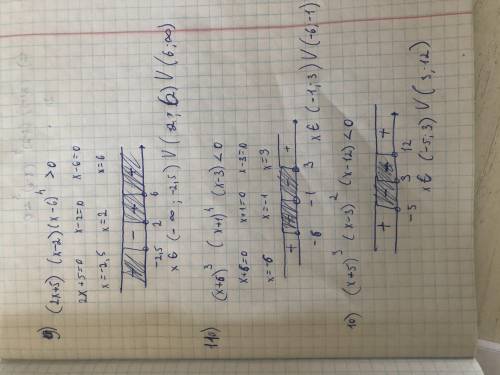 9) (2x+5) (x-2) (x-6)⁴ > 0
2x+5=0 x-2=0 x-6=0
x=-2,5 x=2 x=6
+ - + +
-2,5 2 6
x ∈ (-∞; -2,5) V (2; 6) V (6; ∞)
110) (x+6)³ (x+1)⁴ (x-3) < 0
x+6=0 x+1=0 x-3=0
x=-6 x=-1 x=3
+ - - +
-6 -1 3
x ∈ (-1; 3) V (-6; -1)
10) (x+5)³ (x-3)² (x-12) < 0
+ - - +
-5 3 12
x ∈ (-5; 3) V (3; 12)